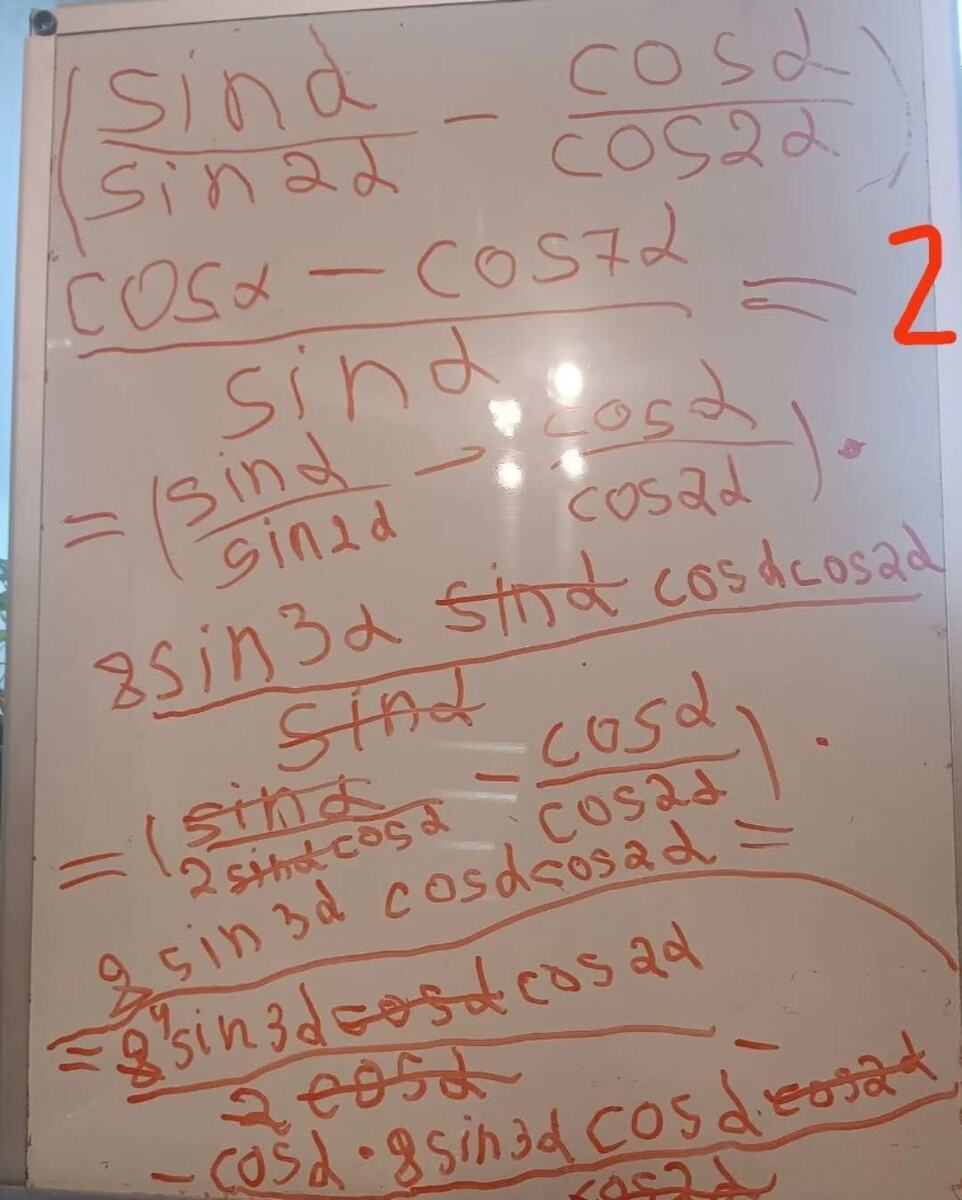 (sinα/sin2α - cosα/cos2α)
cosα - cos7α/sinα = 2
= (sinα/sin2α - cosα/cos2α) ·
8sin3α sinα cosαcos2α/sinα
= (sinα/2sinαcosα - cosα/cos2α) ·
8 sin3α cosαcos2α =
= 8⁴sin3αcosαcos2α/2cosα -
- cosα · 8sin3αcosα·cos2α/cos2α